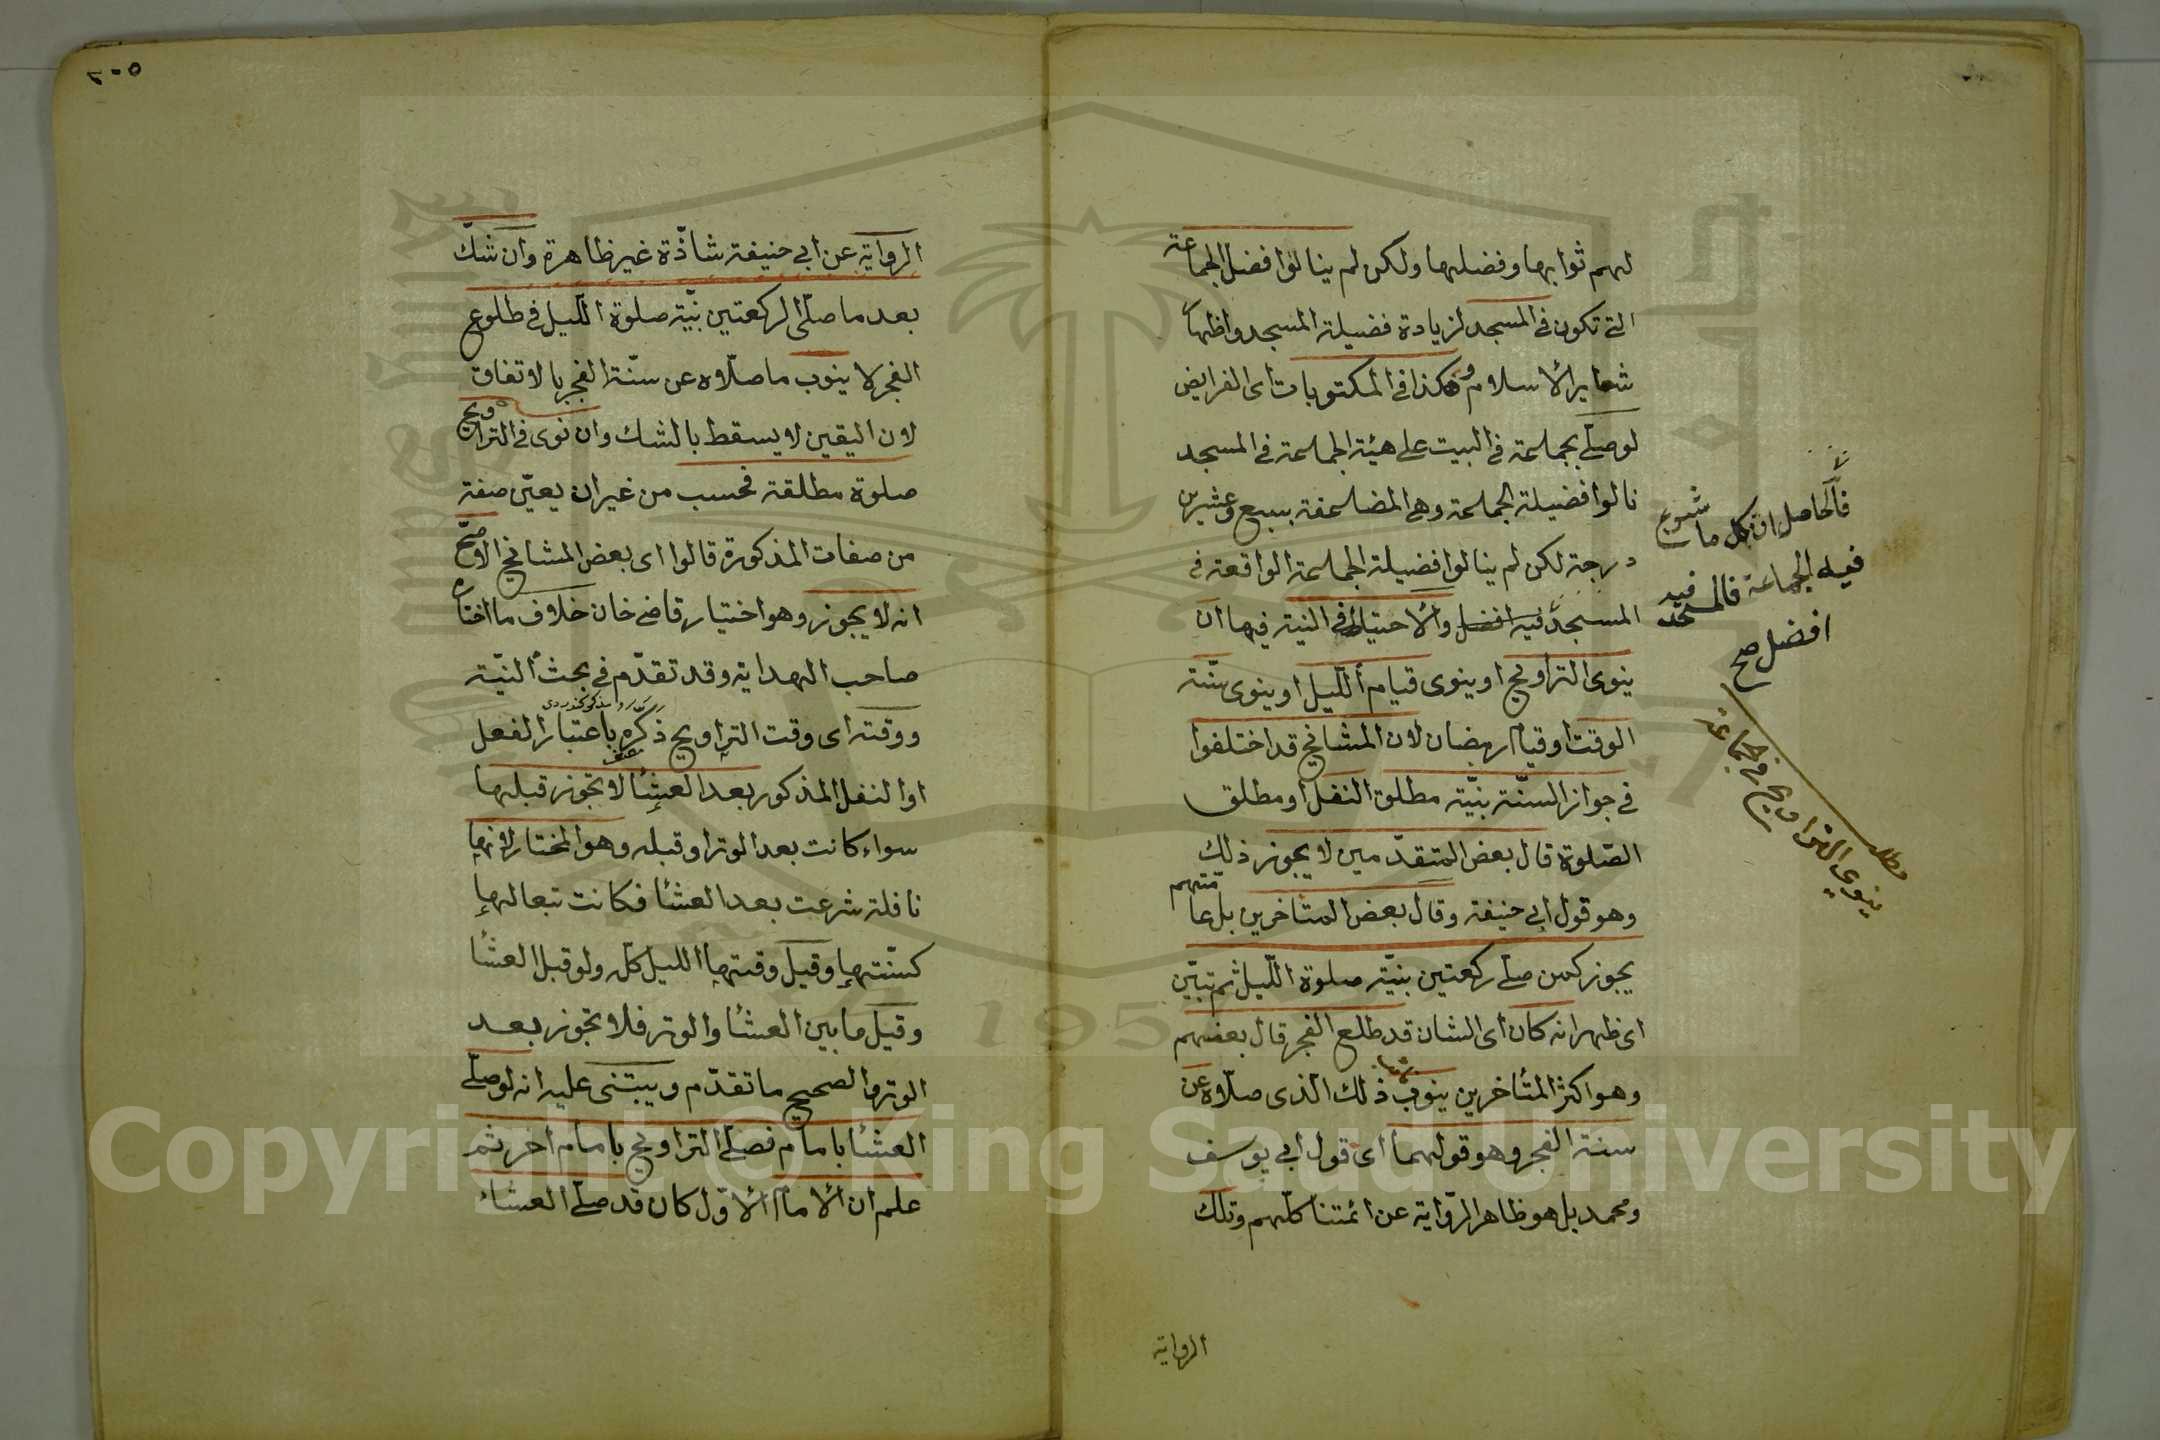 لهم ثوابها وفضلها ولكن لم ينالوا فضل الجماعة
التي تكون في المسجد لزيادة فضيلة المسجد واظهار
شعاير الاسلام وهكذا في المكتوبات اى الفرايض
لو صلى بجماعة في البيت على هيئة الجماعة في المسجد
نالوا فضيلة الجماعة وهي المضاعفة بسبع وعشرين
درجة لكن لم ينالوا فضيلة الجماعة الواقعة في
المسجد فيه افضل والاحتياط في النية فيها ان
ينوى التراويح او ينوى قيام الليل او ينوى سنة
الوقت او قيام رمضان لان المشائخ قد اختلفوا
في جواز السنة بنية مطلق النفل او مطلق
الصلوة قال بعض المتقدمين لا يجوز ذلك
وهو قول ابي حنيفة وقال بعض المتأخرين بل عامتهم
يجوز كمن صلى ركعتين بنية صلوة الليل ثم تبين
اى ظهر انه كان اى الشان قد طلع الفجر قال بعضهم
وهو اكثر المتأخرين ينوب ذلك الذى صلاه عن
سنة الفجر وهو قولهما اى قول ابي يوسف
ومحمد بل هو ظاهر الرواية عن ائمتنا كلهم وتلك
الرواية
فالحاصل ان كل ما شرع
فيه الجماعة فالمسجد فيه
افضل صح
مطلب
ينوي التراويح في جماعة
٢٠٥
الرواية عن ابي حنيفة شاذة غير ظاهرة وان شك
بعد ما صلى الركعتين بنية صلوة الليل في طلوع
الفجر لا ينوب ما صلاه عن سنة الفجر بالاتفاق
لان اليقين لا يسقط بالشك وان نوى في التراويح
صلوة مطلقة فحسب من غير ان يعين صفة
من صفات المذكورة قالوا اى بعض المشائخ الاصح
انه لا يجوز وهو اختيار قاضي خان خلاف ما اختاره
صاحب الهداية وقد تقدم في بحث النية
ووقته اى وقت التراويح ذكره باعتبار الفعل
او النفل المذكور بعد العشأ لا تجوز قبلها
سواء كانت بعد الوتر او قبله وهو المختار لانها
نافلة شرعت بعد العشأ فكانت تبعا لها
كسنتها وقيل وقتها الليل كله ولو قبل العشأ
وقيل ما بين العشأ والوتر فلا تجوز بعد
الوتر والصحيح ما تقدم ويبتنى عليه انه لو صلى
العشأ بامام فصلى التراويح بامام اخر ثم
علم ان الامام الاول كان قد صلى العشاء